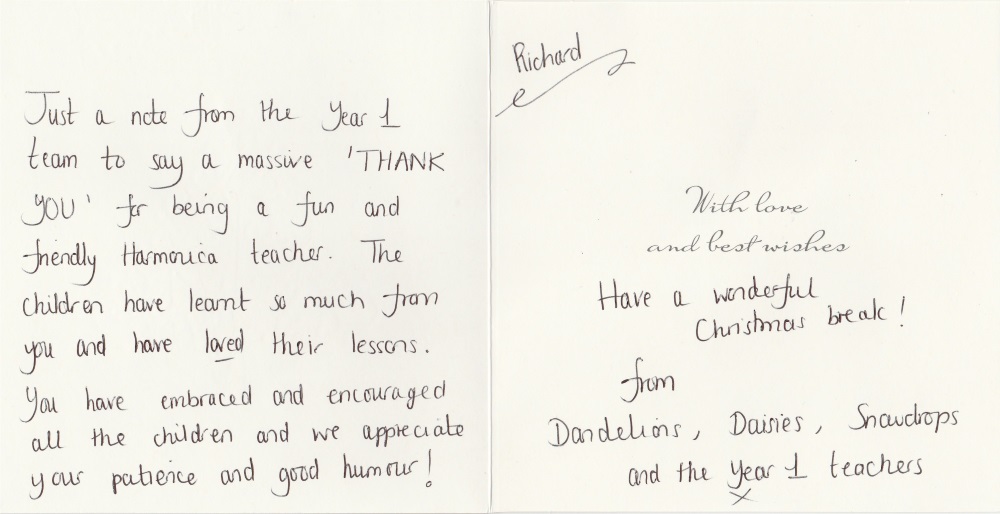 Just a note from the Year 1
team to say a massive 'THANK
YOU' for being a fun and
friendly Harmonica teacher. The
children have learnt so much from
you and have loved their lessons.
You have embraced and encouraged
all the children and we appreciate
your patience and good humour!
Richard
With love
and best wishes
Have a wonderful
Christmas break!
from
Dandelions, Daisies, Snowdrops
and the Year 1 teachers
x